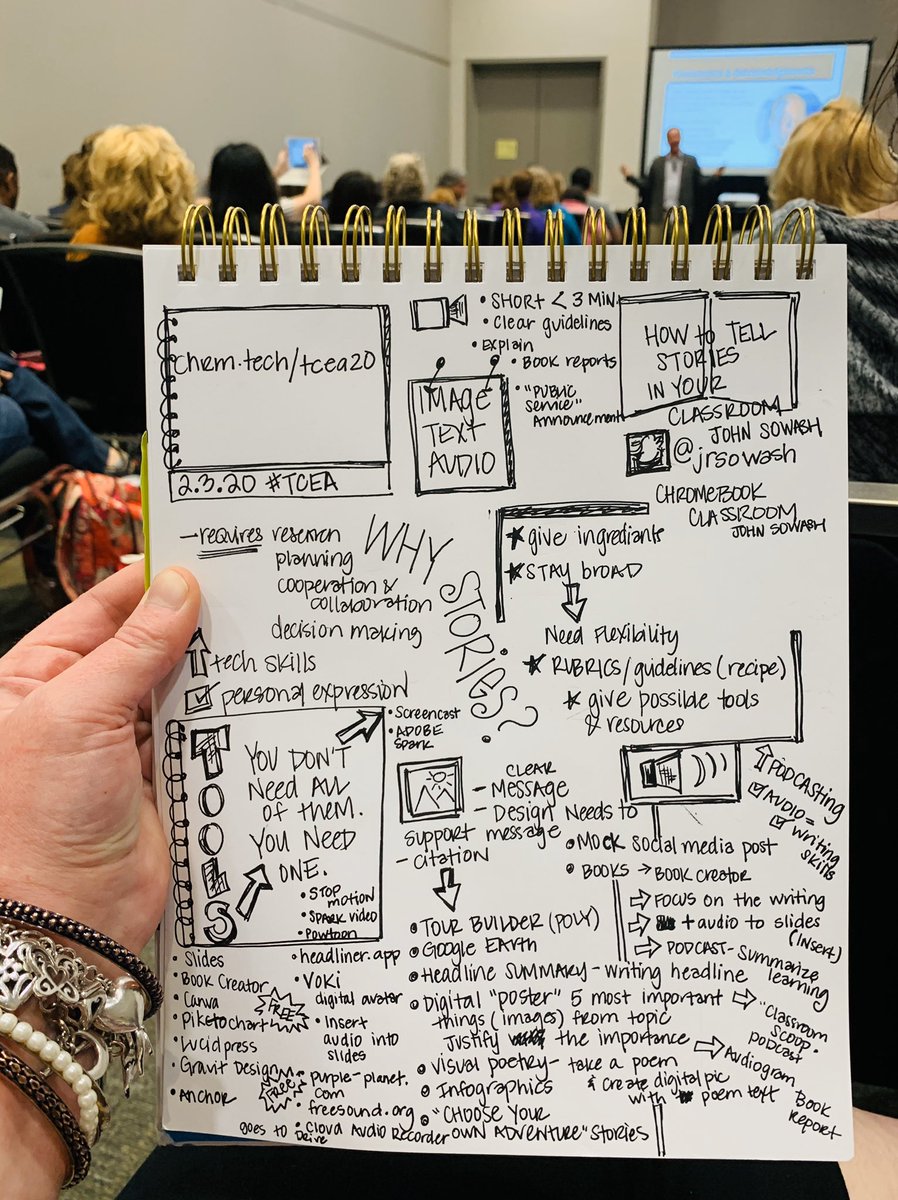 chrm.tech/tcea20
2.3.20 #TCEA
• SHORT < 3 MIN.
• Clear guidelines
• Explain
• Book reports
• "PUBLIC
Service"
Announcement
IMAGE
TEXT
AUDIO
HOW to TELL
STORIES
IN YOUR
CLASSROOM
JOHN SOWASH
@jrsowash
CHROMEBOOK
CLASSROOM
JOHN SOWASH
→ requires research
planning
cooperation &
collaboration
decision making
tech skills
personal expression
WHY
STORIES?
* give ingrediants
* STAY BROAD
Need Flexibility
* RUBRICS/guidelines (recipe)
* give possible tools
& resources
TOOLS
YOU DON'T
NEED ALL
OF THEM.
YOU NEED
ONE.
• STOP
MOTION
• SPARK VIDEO
• Powtoon
• Screencast
• ADOBE
Spark
• Slides
• Book Creator
• Canva
• Piktochart
FREE
• Lucidpress
• Gravit Design
FREE
• Anchor
• headliner.app
• Voki
digital avatar
• Insert
audio into
slides
• purple-planet.
com
• freesound.org
• Clova Audio Recorder
goes to Drive
CLEAR
- Message
- Design Needs to
support message
- Citation
• TOUR BUILDER (POLY)
• Google EARTH
• Headline SUMMARY - writing headline
• Digital "poster" 5 most important
things (images) from topic
Justify the importance
• Visual poetry - take a poem
& create digital pic
with poem text
• Infographics
• "CHOOSE YOUR
OWN ADVENTURE" STORIES
PODCASTING
AUDIO =
Writing
skills
• MOCK Social media post
• BOOKS → BOOK creator
⇒ FOCUS on the writing
⇒ + audio to slides
(Insert)
⇒ PODCAST - Summarize
learning
⇒ "Classroom
Scoop"
podcast
⇒ Audiogram
Book
Report